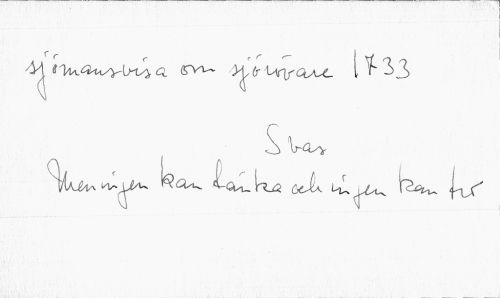 sjömansvisa om sjörövare 1733
Svas
Men ingen kan tänka och ingen kan tro